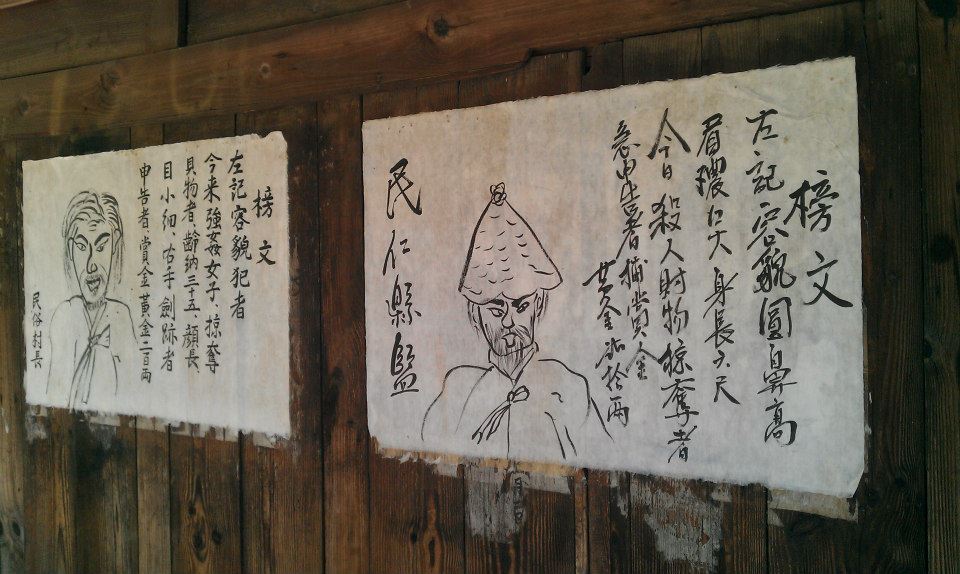 榜文
左記容貌圓自鼻高
眉濃口大身長五尺
今日殺人財物掠奪者
急申告者捕賞金
黄金貳拾兩
民仁縣監
榜文
左記容貌犯者
今来強姦女子、掠奪
貝物者、齡納三十五、顔長、
目小細、右手劍跡者
申告者、賞金黃金二百兩
民俗村長